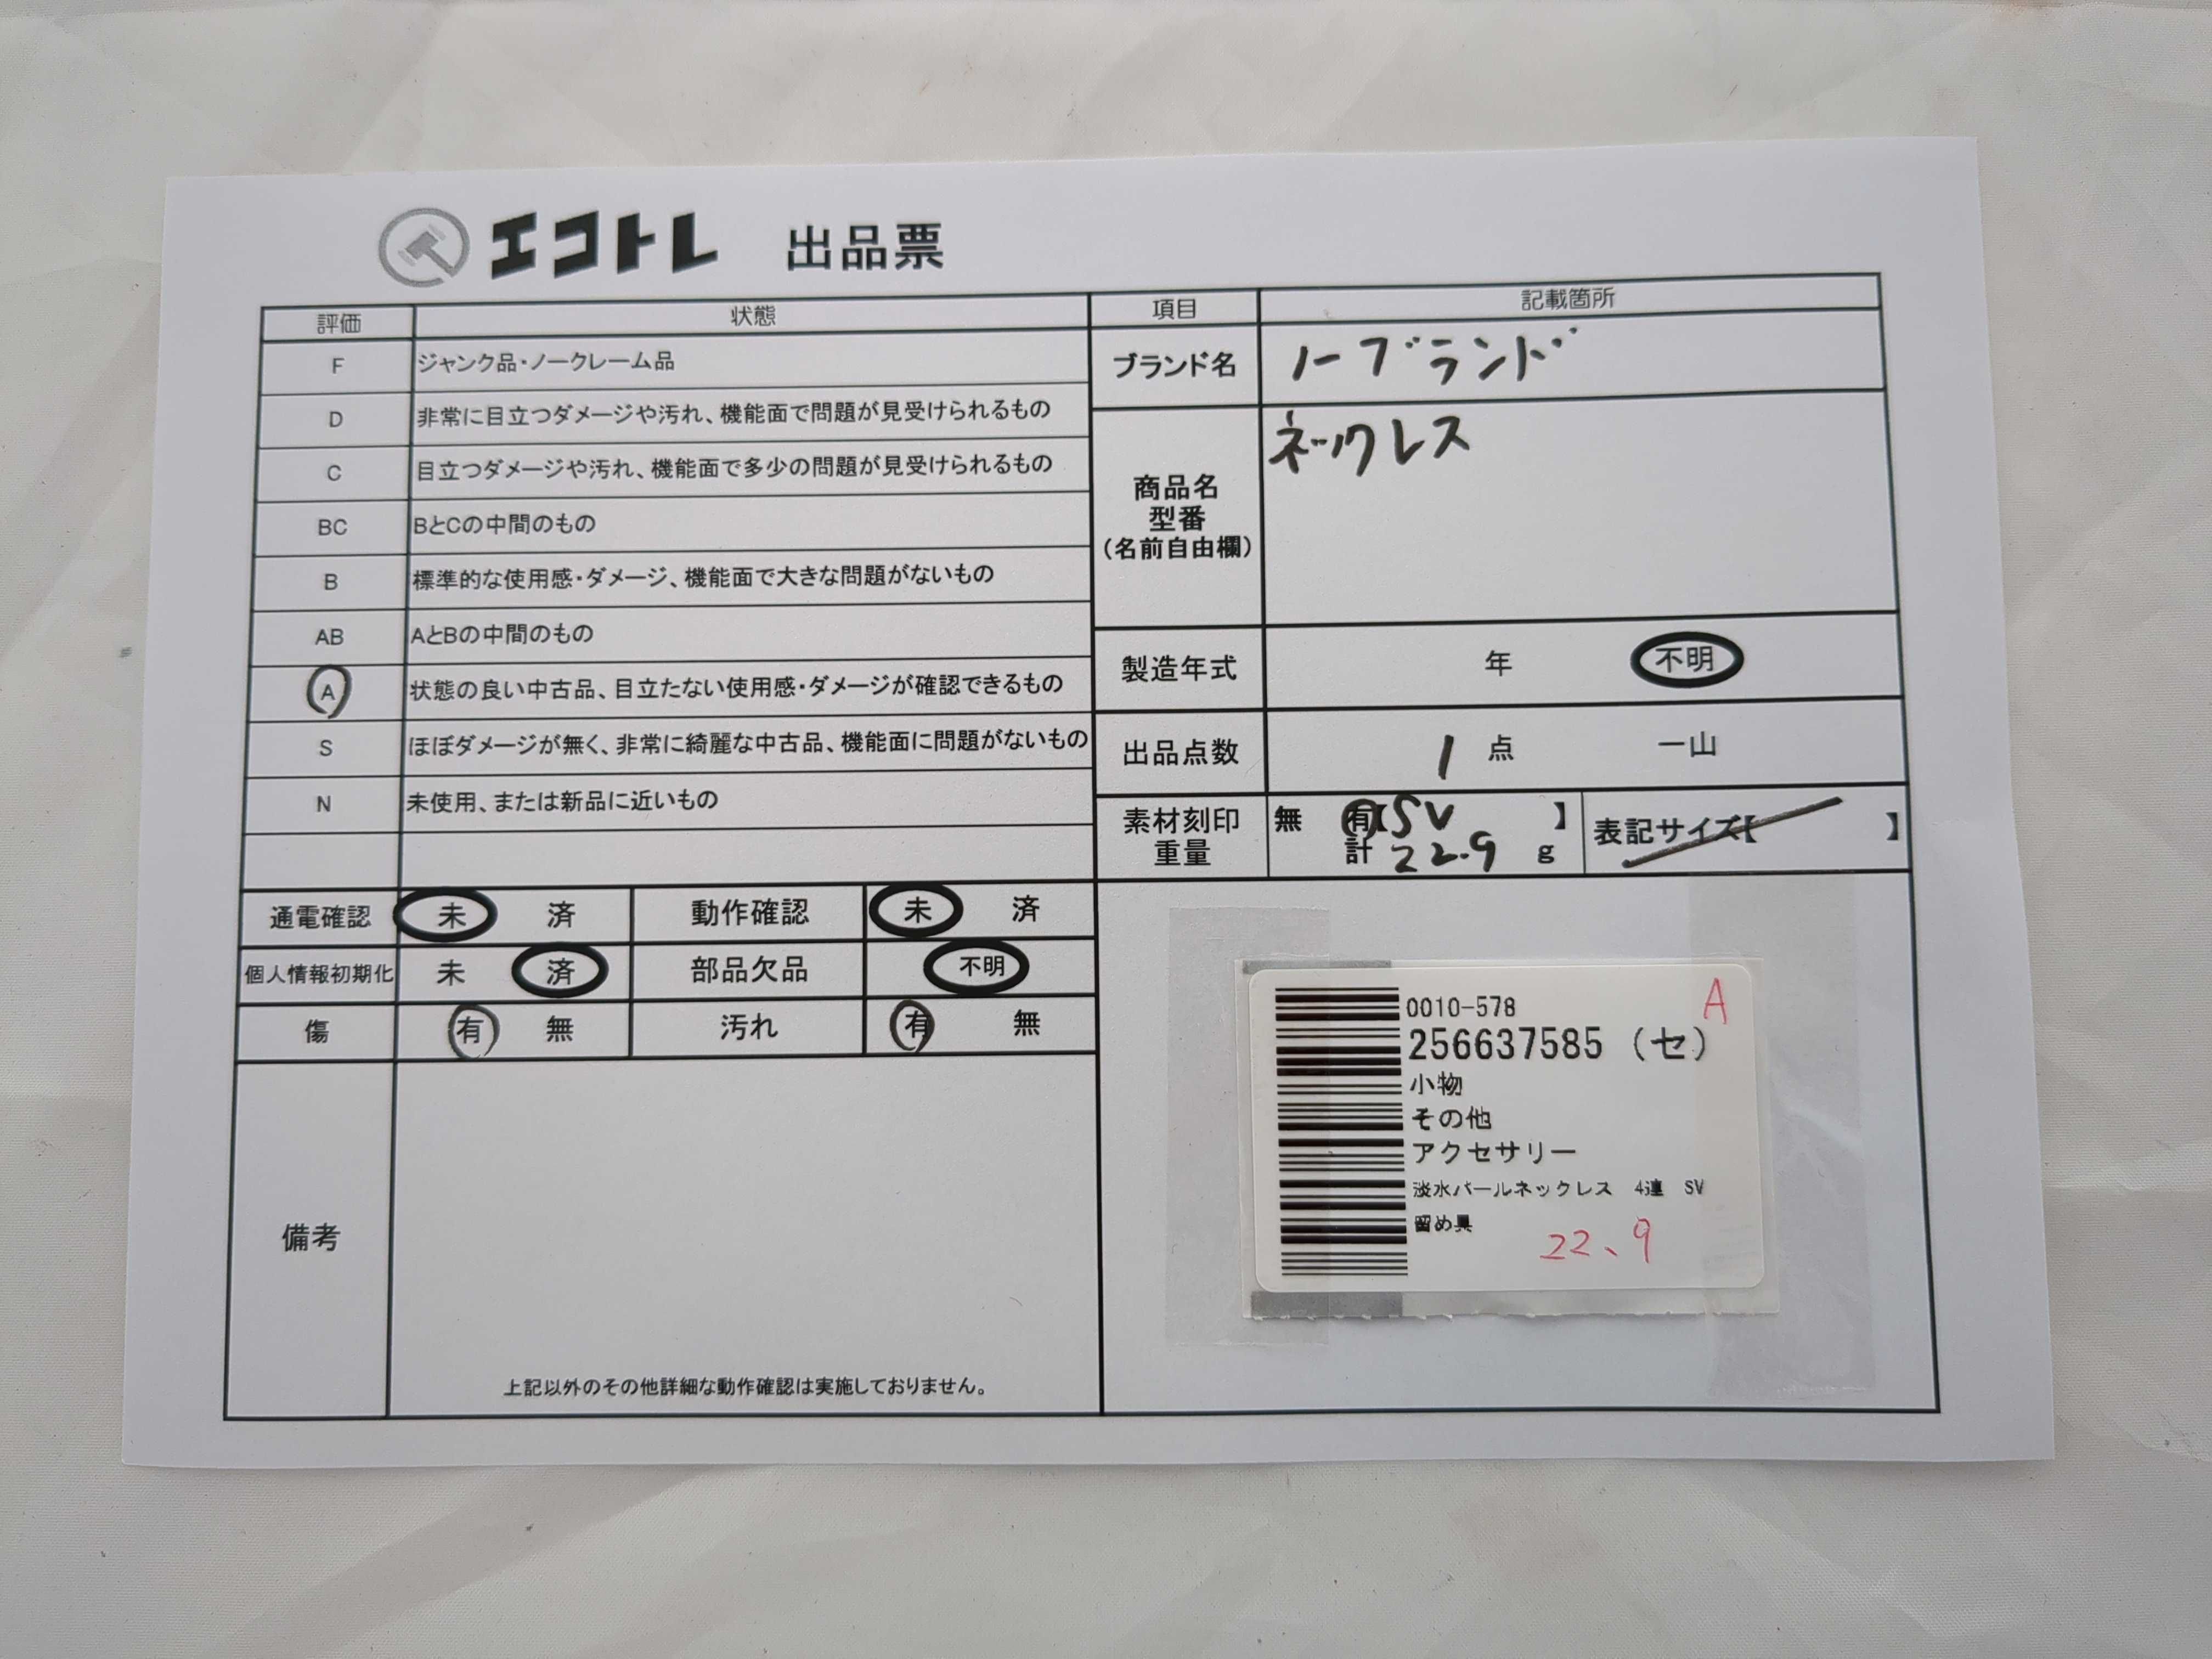 エコトレ 出品票
評価 状態
F ジャンク品・ノークレーム品
D 非常に目立つダメージや汚れ、機能面で問題が見受けられるもの
C 目立つダメージや汚れ、機能面で多少の問題が見受けられるもの
BC BとCの中間のもの
B 標準的な使用感・ダメージ、機能面で大きな問題がないもの
AB AとBの中間のもの
A 状態の良い中古品、目立たない使用感・ダメージが確認できるもの
S ほぼダメージが無く、非常に綺麗な中古品、機能面に問題がないもの
N 未使用、または新品に近いもの
項目 記載箇所
ブランド名 ノーブランド
商品名
型番
(名前自由欄)
ネックレス
製造年式 年 不明
出品点数 1 点 一山
素材刻印 無 有【SV 】
重量 計 22.9 g
表記サイズ【 】
通電確認 未 済 動作確認 未 済
個人情報初期化 未 済 部品欠品 不明
傷 有 無 汚れ 有 無
備考
上記以外のその他詳細な動作確認は実施しておりません。
0010-578 A
256637585 (セ)
小物
その他
アクセサリー
淡水パールネックレス 4連 SV
留め具
22、9